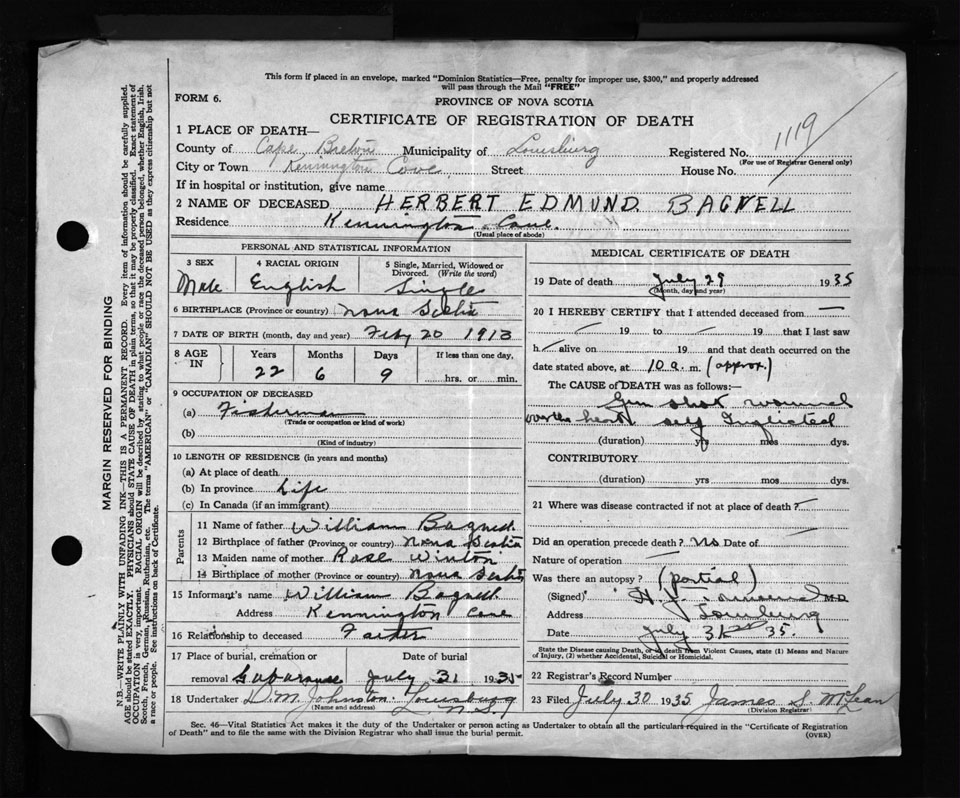 This form if placed in an envelope, marked "Dominion Statistics—Free, penalty for improper use, $300," and properly addressed
will pass through the Mail "FREE"
FORM 6.
PROVINCE OF NOVA SCOTIA
CERTIFICATE OF REGISTRATION OF DEATH
1119
1 PLACE OF DEATH—
County of Cape Breton Municipality of Louisburg Registered No.
(For use of Registrar General only)
City or Town Kennington Cove Street House No.
If in hospital or institution, give name
2 NAME OF DECEASED HERBERT EDMUND BAGNELL
Residence Kennington Cove
(Usual place of abode)
PERSONAL AND STATISTICAL INFORMATION
3 SEX 4 RACIAL ORIGIN 5 Single, Married, Widowed or Divorced. (Write the word)
Male English Single
6 BIRTHPLACE (Province or country) Nova Scotia
7 DATE OF BIRTH (month, day and year) Feby 20 1913
8 AGE IN Years Months Days If less than one day,
22 6 9 hrs. or min.
9 OCCUPATION OF DECEASED
(a) Fisherman
(Trade or occupation or kind of work)
(b)
(Kind of industry)
10 LENGTH OF RESIDENCE (in years and months)
(a) At place of death
(b) In province Life
(c) In Canada (if an immigrant)
Parents
11 Name of father William Bagnell
12 Birthplace of father (Province or country) Nova Scotia
13 Maiden name of mother Rose Winton
14 Birthplace of mother (Province or country) Nova Scotia
15 Informant's name William Bagnell
Address Kennington Cove
16 Relationship to deceased Father
17 Place of burial, cremation or Date of burial
removal Gabarouse July 31 1935
18 Undertaker D. M. Johnston Louisburg
(Name and address)
MEDICAL CERTIFICATE OF DEATH
19 Date of death July 29 1935
(Month, day and year)
20 I HEREBY CERTIFY that I attended deceased from —
19 to 19 that I last saw
h alive on 19 and that death occurred on the
date stated above, at 10 a. m. (approx.)
The CAUSE of DEATH was as follows:—
Gun shot wound
over the heart self Inflicted
(duration) yrs mos dys.
CONTRIBUTORY
(duration) yrs mos dys.
21 Where was disease contracted if not at place of death?
Did an operation precede death? No Date of
Nature of operation
Was there an autopsy? (partial)
(Signed) M.D.
Address Louisburg
Date July 31st 35.
State the Disease causing Death, or in death from Violent Causes, state (1) Means and Nature
of Injury, (2) whether Accidental, Suicidal or Homicidal.
22 Registrar's Record Number
23 Filed July 30 1935 James S. McLean
(Division Registrar)
Sec. 46—Vital Statistics Act makes it the duty of the Undertaker or person acting as Undertaker to obtain all the particulars required in the "Certificate of Registration
of Death" and to file the same with the Division Registrar who shall issue the burial permit.
(OVER)
MARGIN RESERVED FOR BINDING
N.B.—WRITE PLAINLY WITH UNFADING INK—THIS IS A PERMANENT RECORD. Every item of information should be carefully supplied.
AGE should be stated EXACTLY. PHYSICIANS should STATE CAUSE OF DEATH in plain terms, so that it may be properly classified. Exact statement of
OCCUPATION is very, important. RACIAL ORIGIN will be described by stating to what people or race the deceased person belonged, whether English, Irish,
Scotch, French, German, Russian, Ruthenian, etc. The terms "AMERICAN" or "CANADIAN" SHOULD NOT BE USED as they express citizenship but not
a race or people. See instructions on back of Certificate.